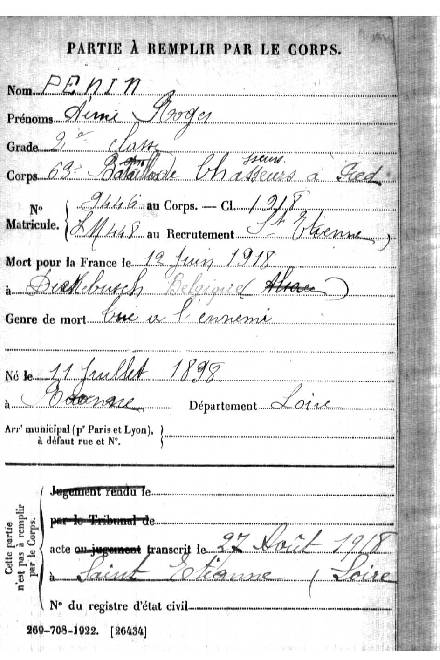 PARTIE À REMPLIR PAR LE CORPS.
Nom PENIN
Prénoms Aimé Roger
Grade 2e classe
Corps 63e Bataillon de Chasseurs à Pied
No Matricule. { 9446 au Corps. — Cl. 1918
LM448 au Recrutement St Etienne )
Mort pour la France le 12 Juin 1918
à Dickebusch Belgique (Alsace)
Genre de mort tué à l'ennemi
Né le 11 Juillet 1898
à Département Loire
Arrt municipal (pr Paris et Lyon), à défaut rue et No.
Cette partie n'est pas à remplir par le Corps.
Jugement rendu le
par le Tribunal de
acte ou jugement transcrit le 27 Août 1918
à Saint Etienne (Loire
No du registre d'état civil
269-708-1922. [26434]